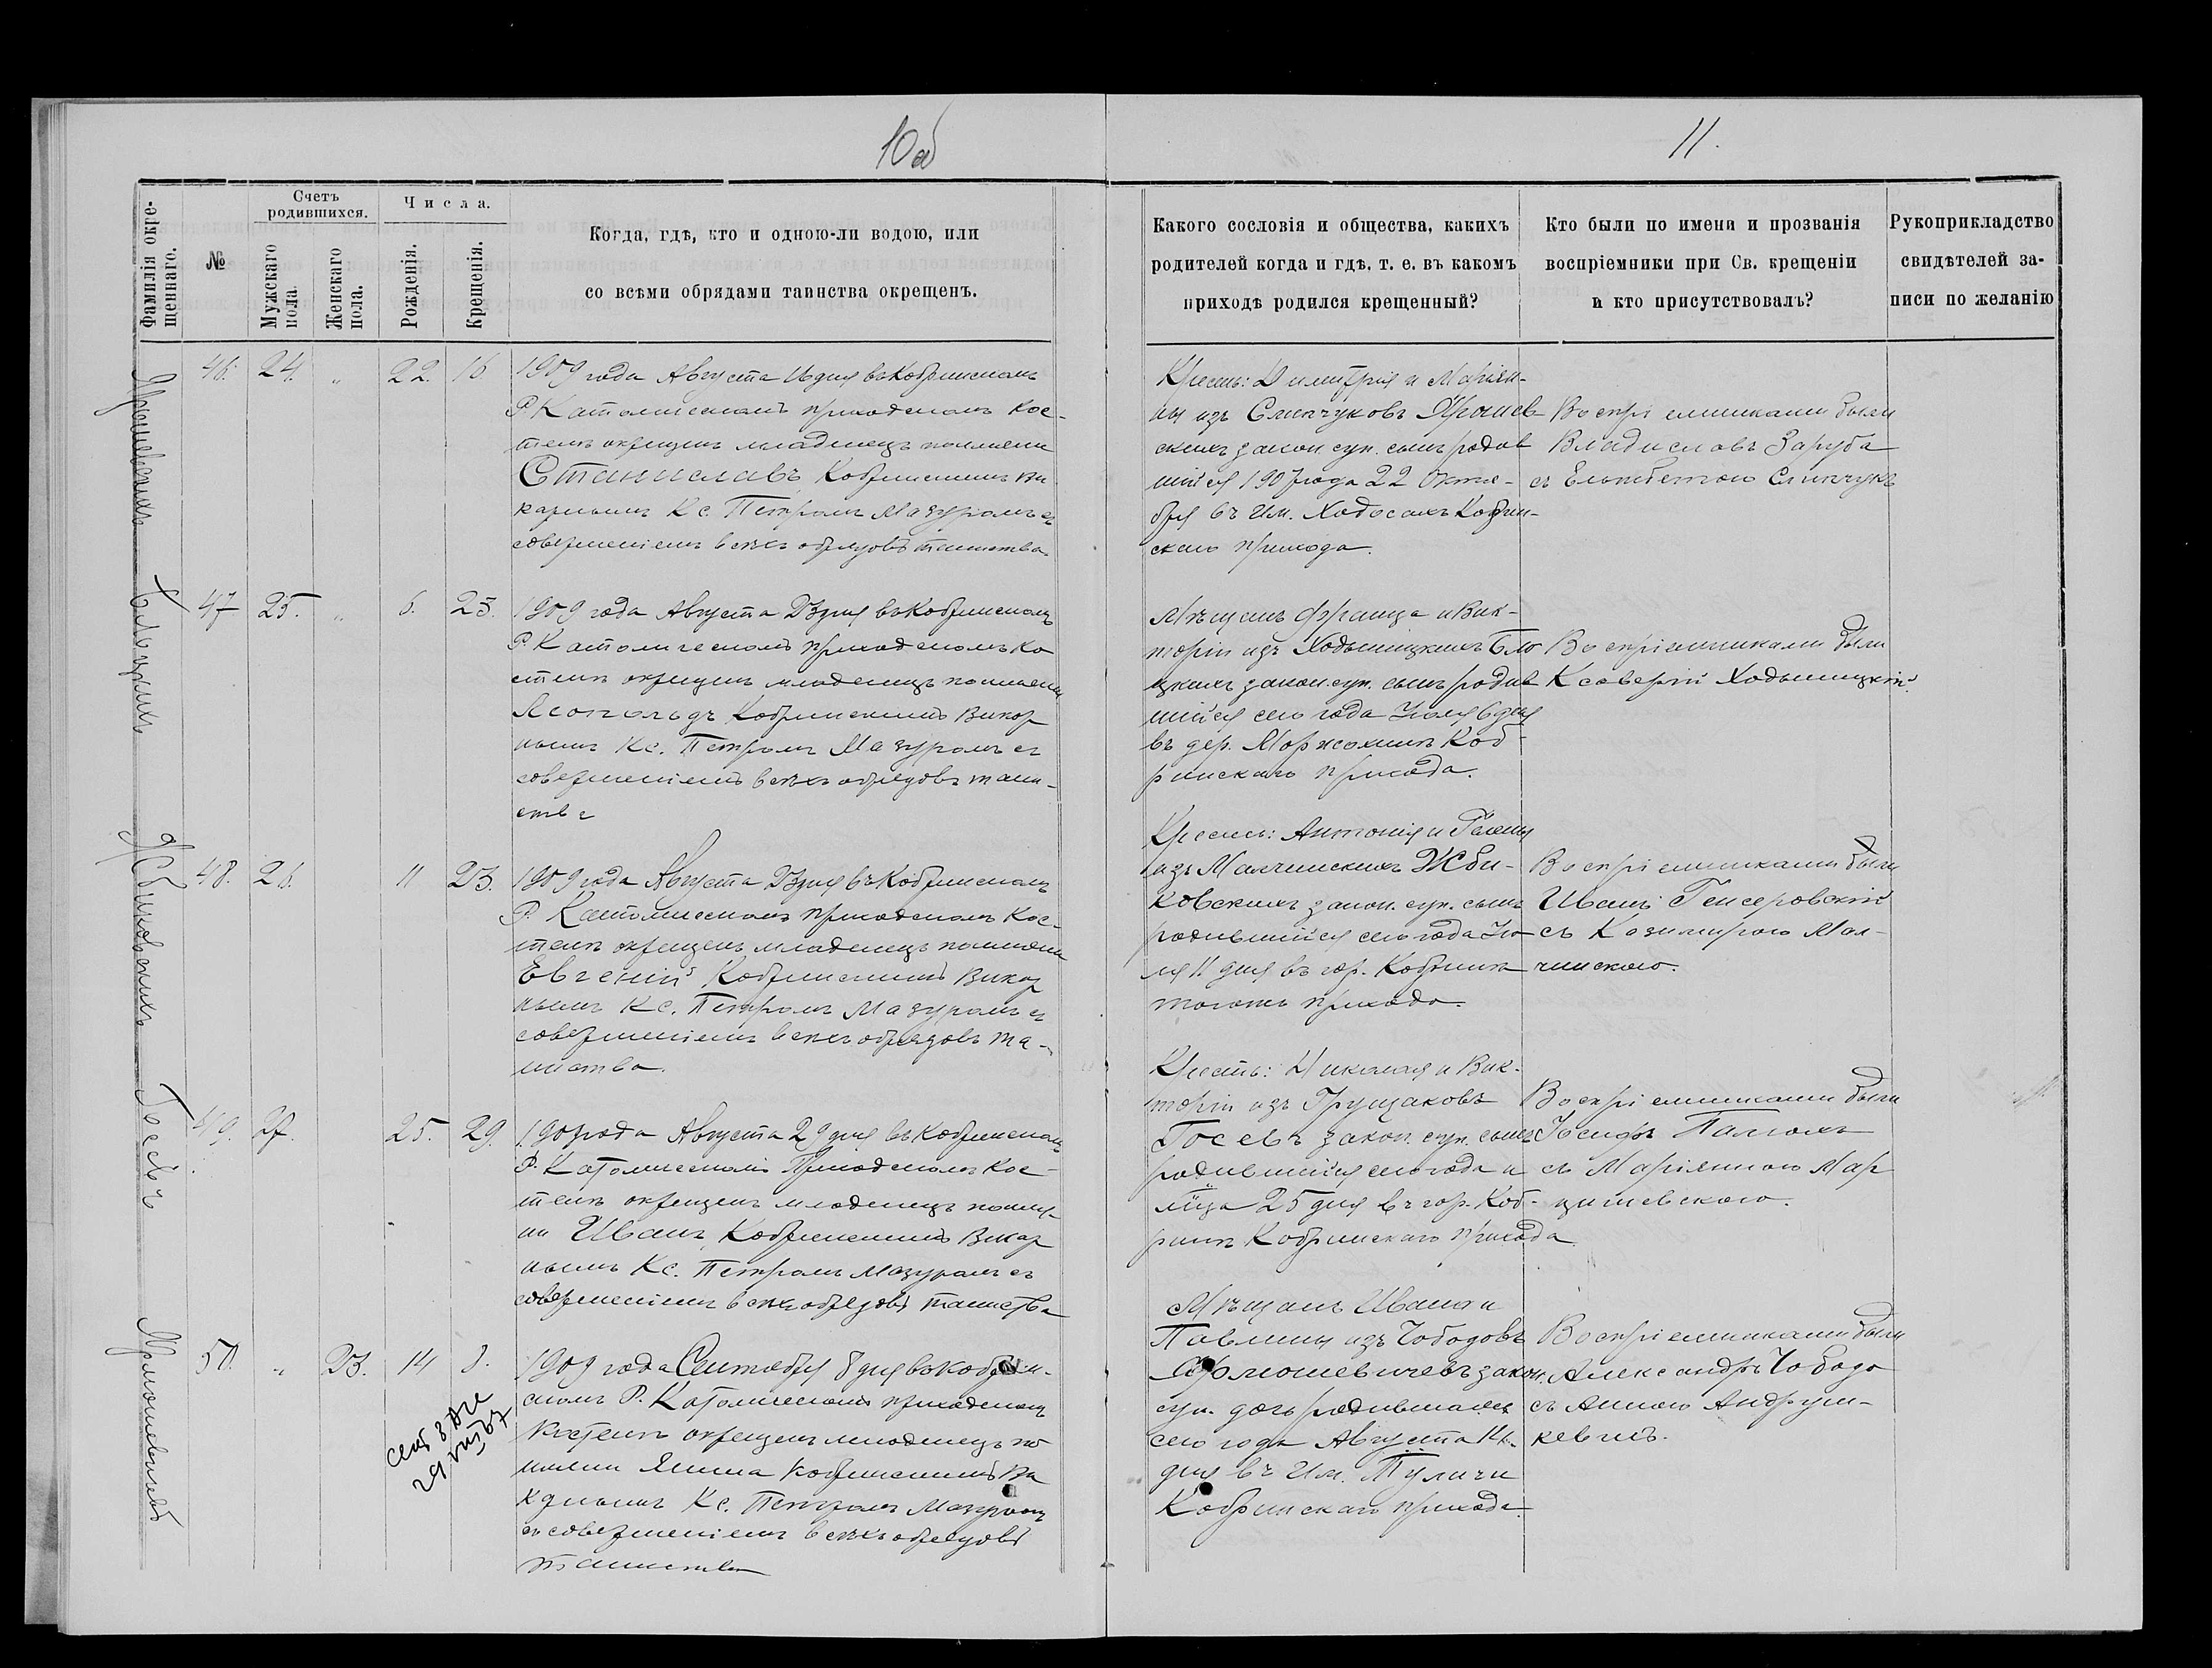 10об
11.
Фамилія окрещеннаго.
№
Счетъ родившихся.
Мужскаго пола.
Женскаго пола.
Числа.
Рожденія.
Крещенія.
Когда, гдѣ, кто и одною-ли водою, или
со всѣми обрядами таинства окрещенъ.
Какого сословія и общества, какихъ
родителей когда и гдѣ, т. е. въ какомъ
приходѣ родился крещенный?
Кто были по имени и прозванія
воспріемники при Св. крещеніи
и кто присутствовалъ?
Рукоприкладство
свидѣтелей за-
писи по желанію
46. 24. „ 22. 16
1909 года Августа 16 дня въ Кобринскомъ
Р. Католическомъ приходскомъ кос-
телѣ окрещенъ младенецъ по имени
Станиславъ Кобринскимъ Ви
карнымъ Кс. Петромъ Мазуромъ съ
совершеніемъ всѣхъ обрядовъ таинства
Крест: Димитрія и Маріан-
ны изъ Слипчуковъ
скихъ закон. суп. сынъ родив
шійся 1907 года 22 Октя-
бря въ Им. Ходосахъ Кобрин-
скаго прихода.
Воспріемниками были
Владиславъ Заруба
съ Слипчукъ
47 25. „ 6. 23.
1909 года Августа 23 дня въ Кобринскомъ
Р. Католическомъ приходскомъ ко
стелѣ окрещенъ младенецъ по имени
Леопольдъ Кобринскимъ Викар
нымъ Кс. Петромъ Мазуромъ съ
совершеніемъ всѣхъ обрядовъ таин-
ства
Мѣщанъ Франца и Вик-
торіи изъ Ходыницкихъ
цкихъ закон. суп. сынъ родив
шійся сего года Іюля 6 дня
въ дер. Коб-
ринскаго прихода.
Воспріемниками были
Ксаверій Ходыницкій.
Жбиковскихъ
48. 26. 11 23.
1909 года Августа 23 дня въ Кобринскомъ
Р. Католическомъ приходскомъ Кос-
телѣ окрещенъ младенецъ по имени
Евгеній Кобринскимъ Викар
нымъ Кс. Петромъ Мазуромъ съ
совершеніемъ всѣхъ обрядовъ та-
инства.
Крест: Антонія и Гелены
изъ Малчинскихъ Жби-
ковскихъ закон. суп. сынъ
родившійся сего года Ію-
ля 11 дня въ гор. Кобринѣ
тогожъ прихода.
Воспріемниками были
Иванъ
съ Казимирою Мал-
чинскою.
Госевъ
49. 27. 25. 29.
1909 года Августа 29 дня въ Кобринскомъ
Р. Католическомъ Приходскомъ Кос-
телѣ окрещенъ младенецъ по име-
ни Иванъ Кобринскимъ Викар
нымъ Кс. Петромъ Мазуромъ съ
совершеніемъ всѣхъ обрядовъ таинства
Крестъ: Николая и Вик-
торіи изъ Грущаковъ
Госевъ закон. суп. сынъ
родившійся сего года и
мѣсяца 25 дня въ гор. Коб-
ринѣ Кобринскаго прихода
Воспріемниками были
Іосифъ
съ Маріянною Мар
цишевскою.
Ярмошевичевъ
50. „ 23. 14 8.
1909 года Сентября 8 дня въ Кобрин-
скомъ Р. Католическомъ приходскомъ
Костелѣ окрещенъ младенецъ по
имени Янина Кобринскимъ Ви
карнымъ Кс. Петромъ Мазуромъ
съ совершеніемъ всѣхъ обрядовъ
таинства
Мѣщанъ Ивана и
Павлины изъ Чободовъ
Ярмошевичевъ закон.
суп. дочь родившаяся
сего года Августа 14
дня въ Им. Туличи
Кобринскаго прихода.
Воспріемниками были
Александръ Чободо
съ Анною Андруш-
кевичъ.